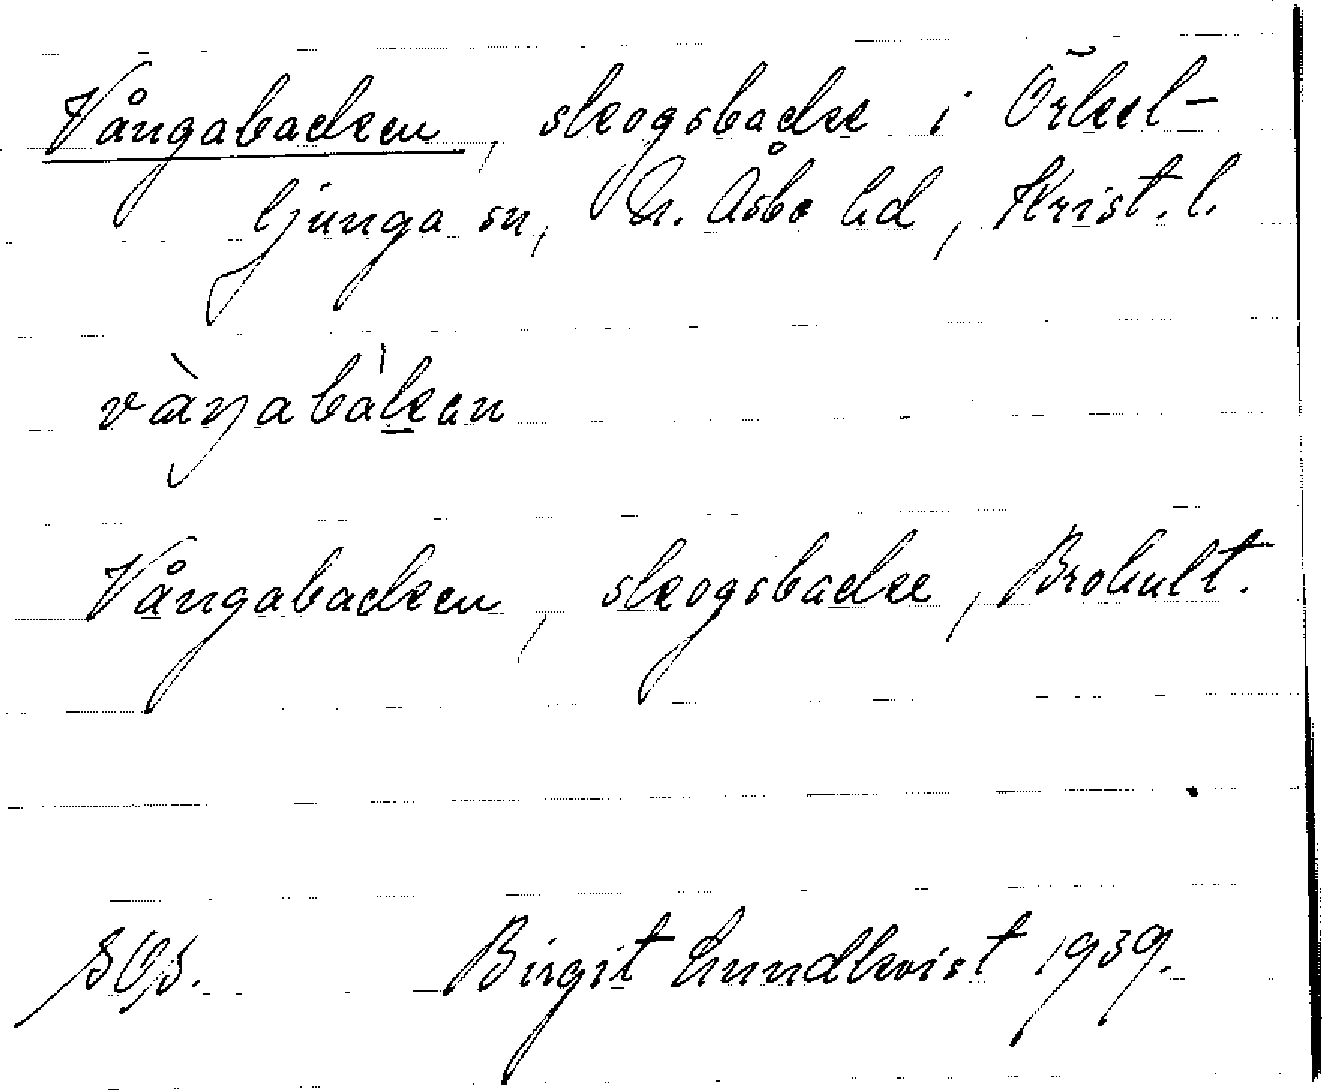 Vångabacken, skogsbacke i Örkel-
ljunga sn, N. Åsbo hd, Krist. l.
vàŋabàkan
Vångabacken, skogsbacke, Brohult.
SOS. Birgit Lundkvist 1939.